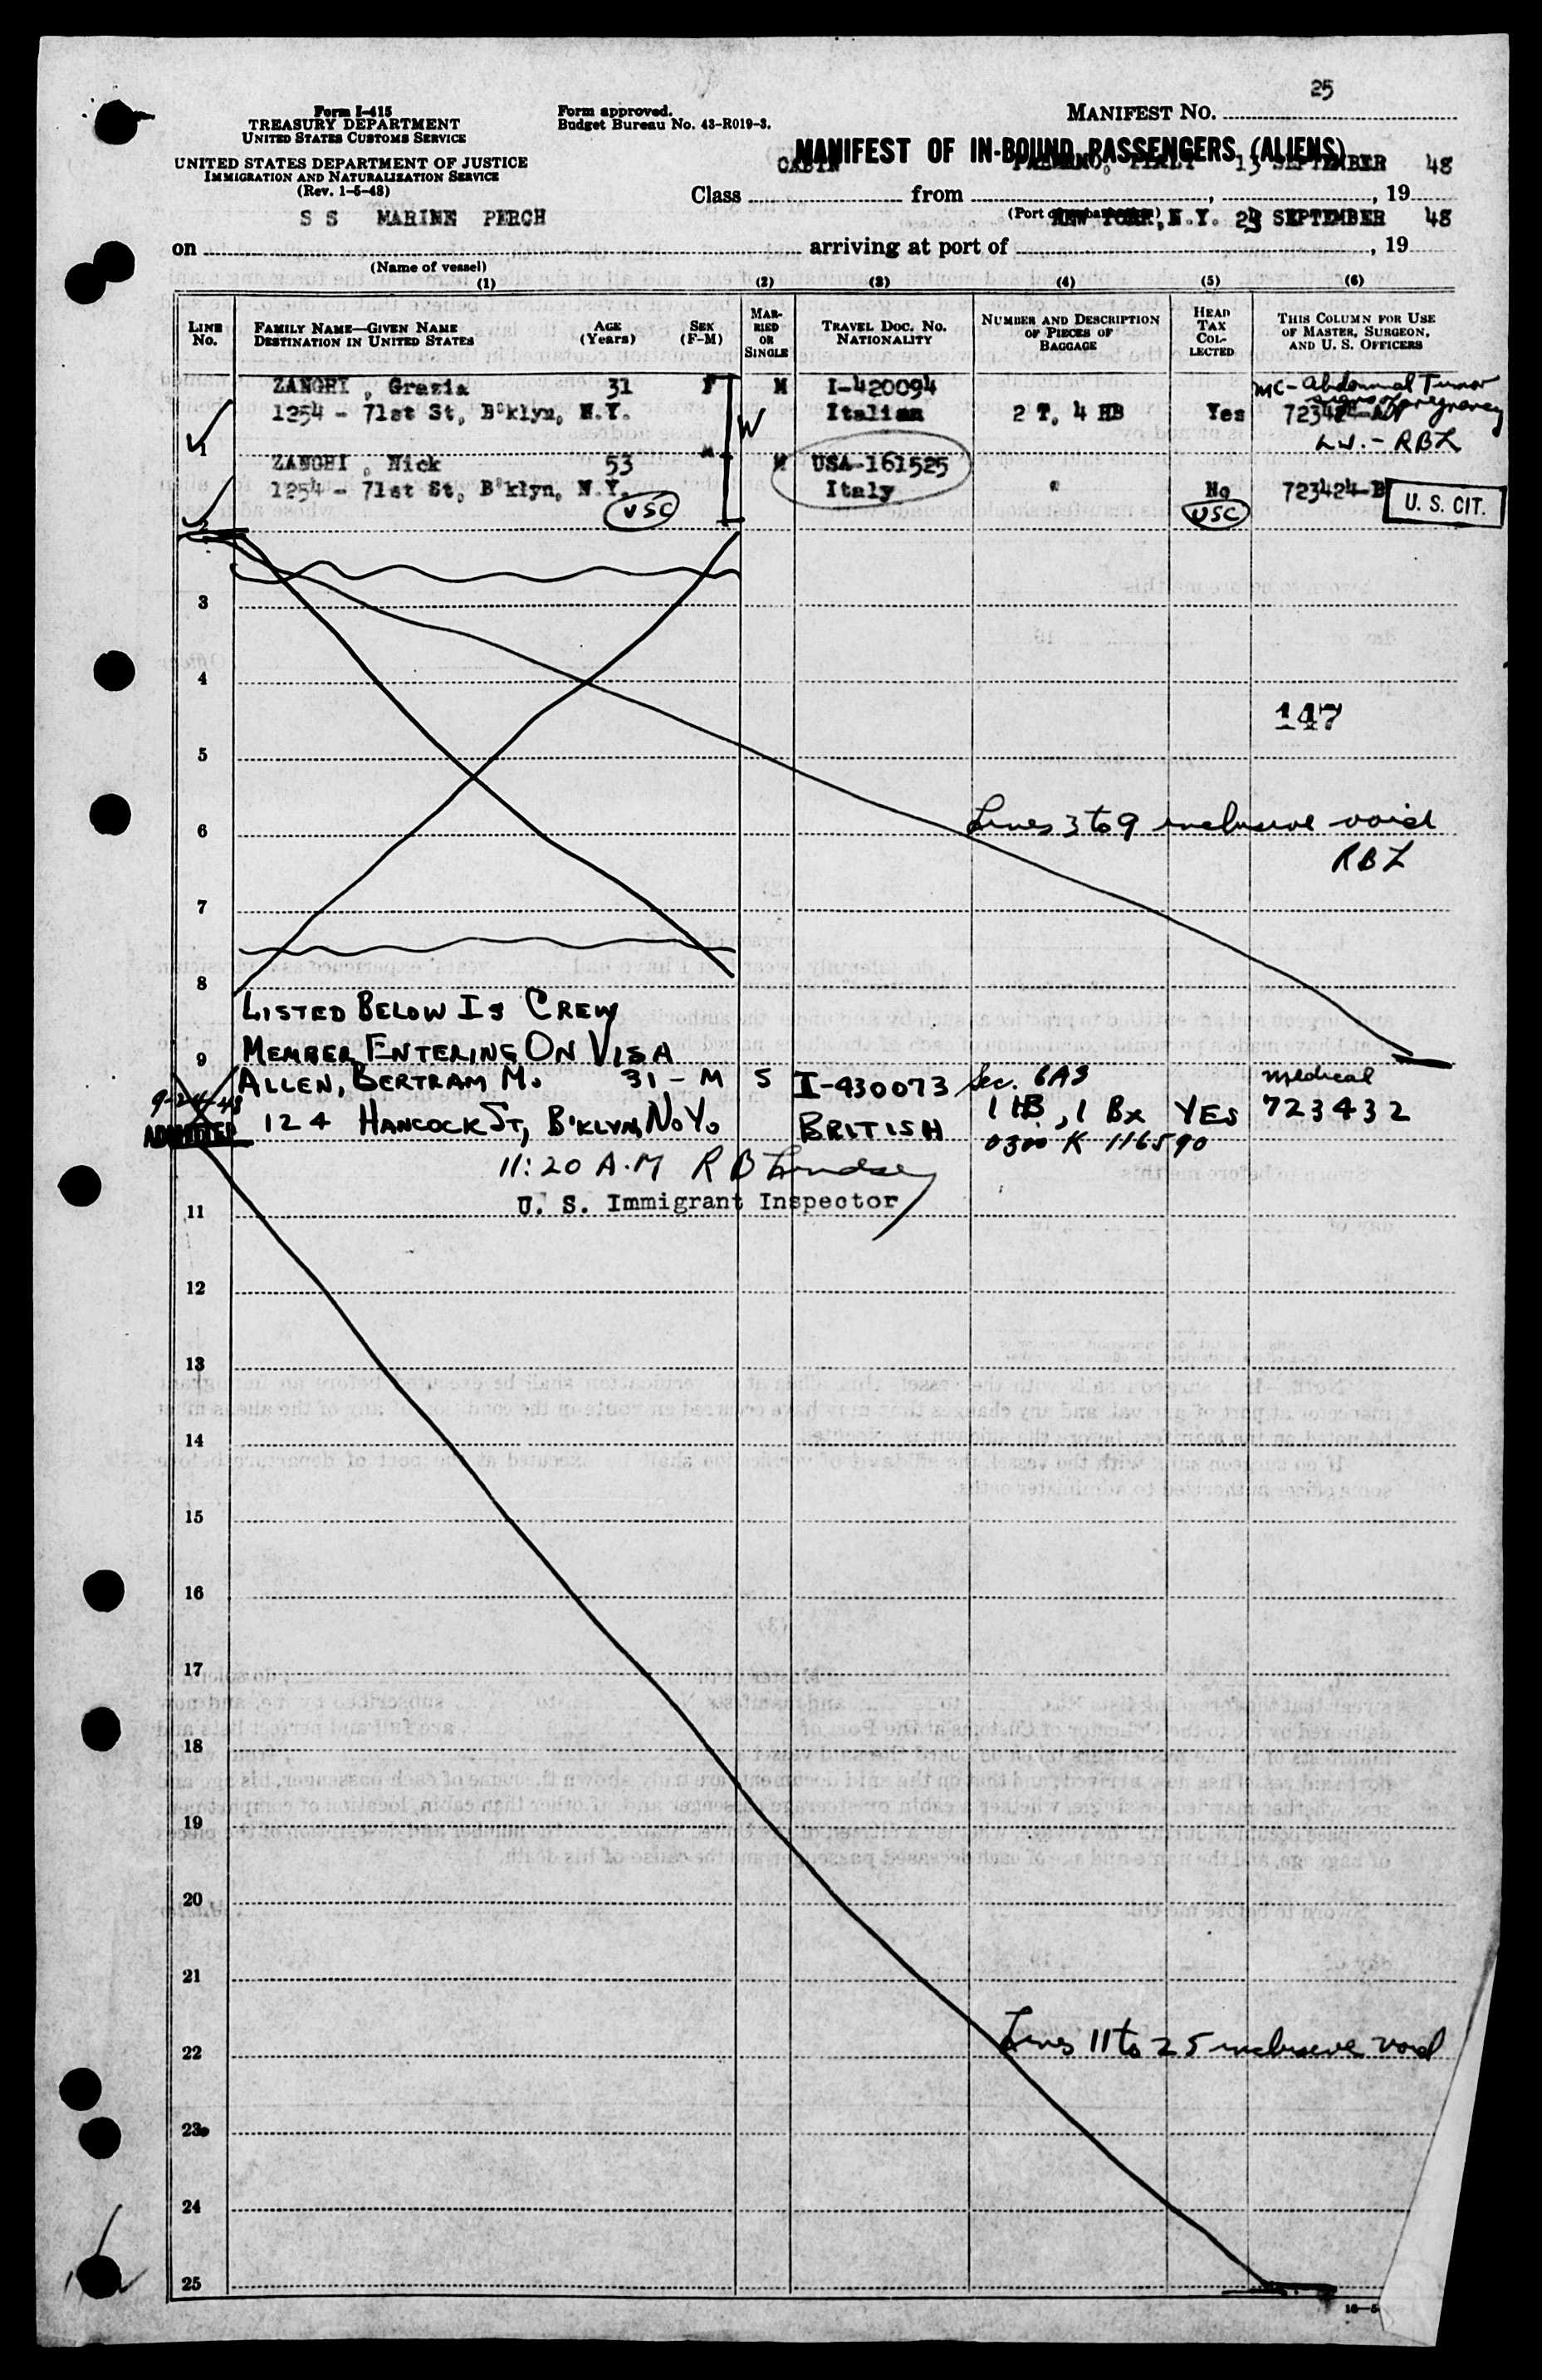 25
Form I-415
TREASURY DEPARTMENT
UNITED STATES CUSTOMS SERVICE
Form approved.
Budget Bureau No. 43-R019-3.
MANIFEST NO.
UNITED STATES DEPARTMENT OF JUSTICE
IMMIGRATION AND NATURALIZATION SERVICE
(Rev. 1-5-48)
MANIFEST OF IN-BOUND PASSENGERS (ALIENS)
Class CABIN from 13 SEPTEMBER, 19 48
S S MARINE PERCH
(Port of embarkation)
on arriving at port of NEW YORK, N.Y. SEPTEMBER, 19 48
(Name of vessel)
(1) (2) (3) (4) (5) (6)
LINE No. FAMILY NAME—GIVEN NAME DESTINATION IN UNITED STATES AGE (Years) SEX (F-M) MARRIED OR SINGLE TRAVEL DOC. NO. NATIONALITY NUMBER AND DESCRIPTION OF PIECES OF BAGGAGE HEAD TAX COLLECTED THIS COLUMN FOR USE OF MASTER, SURGEON, AND U. S. OFFICERS
ZANGHI , Grazia 31 F M I-420094 MC - Abdominal Tumor
1254 - 71st St, B'klyn, N.Y. W Italian 2 T, 4 HB Yes pregnancy
1 - RBL
ZANGHI , Nick 53 M M USA-161525
1254 - 71st St, B'klyn, N.Y. Italy " No 723424-B
USC USC U. S. CIT.
2
3
4
147
5
6 Lines 3 to 9 inclusive void
RBL
7
8
LISTED BELOW IS CREW
9 MEMBER ENTERING ON VISA
ALLEN, BERTRAM M. 31 - M S I-430073 Sec. 6A3 medical
9-24-48 124 HANCOCK ST, B'KLYN, N.Y. BRITISH 1 HB, 1 Bx YES 723432
ADMITTED 0300 K 116590
11:20 A.M R B Lindsey
11 U. S. Immigrant Inspector
12
13
14
15
16
17
18
19
20
21
22 Lines 11 to 25 inclusive void
23
24
25